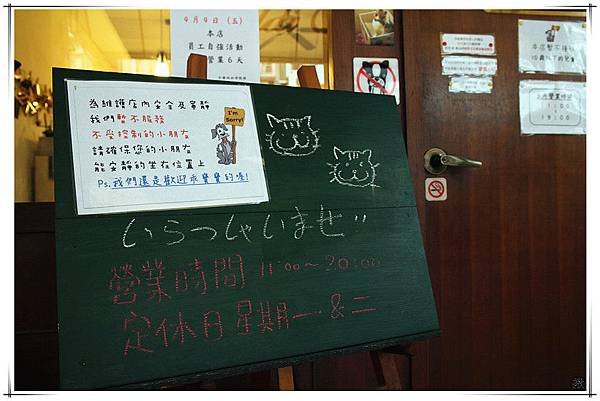 4月4日（五）
本店
員工自強活動
營業6天
為維護店內安全及寧靜
我們暫不服務
不受控制的小朋友
請確保您的小朋友
能安靜的坐在位置上
Ps.我們還是歡迎乖寶寶的喔!
I'm
Sorry!
いらっしゃいませ!!
營業時間 11:00～20:00
定休日星期一&二
本店暫不接